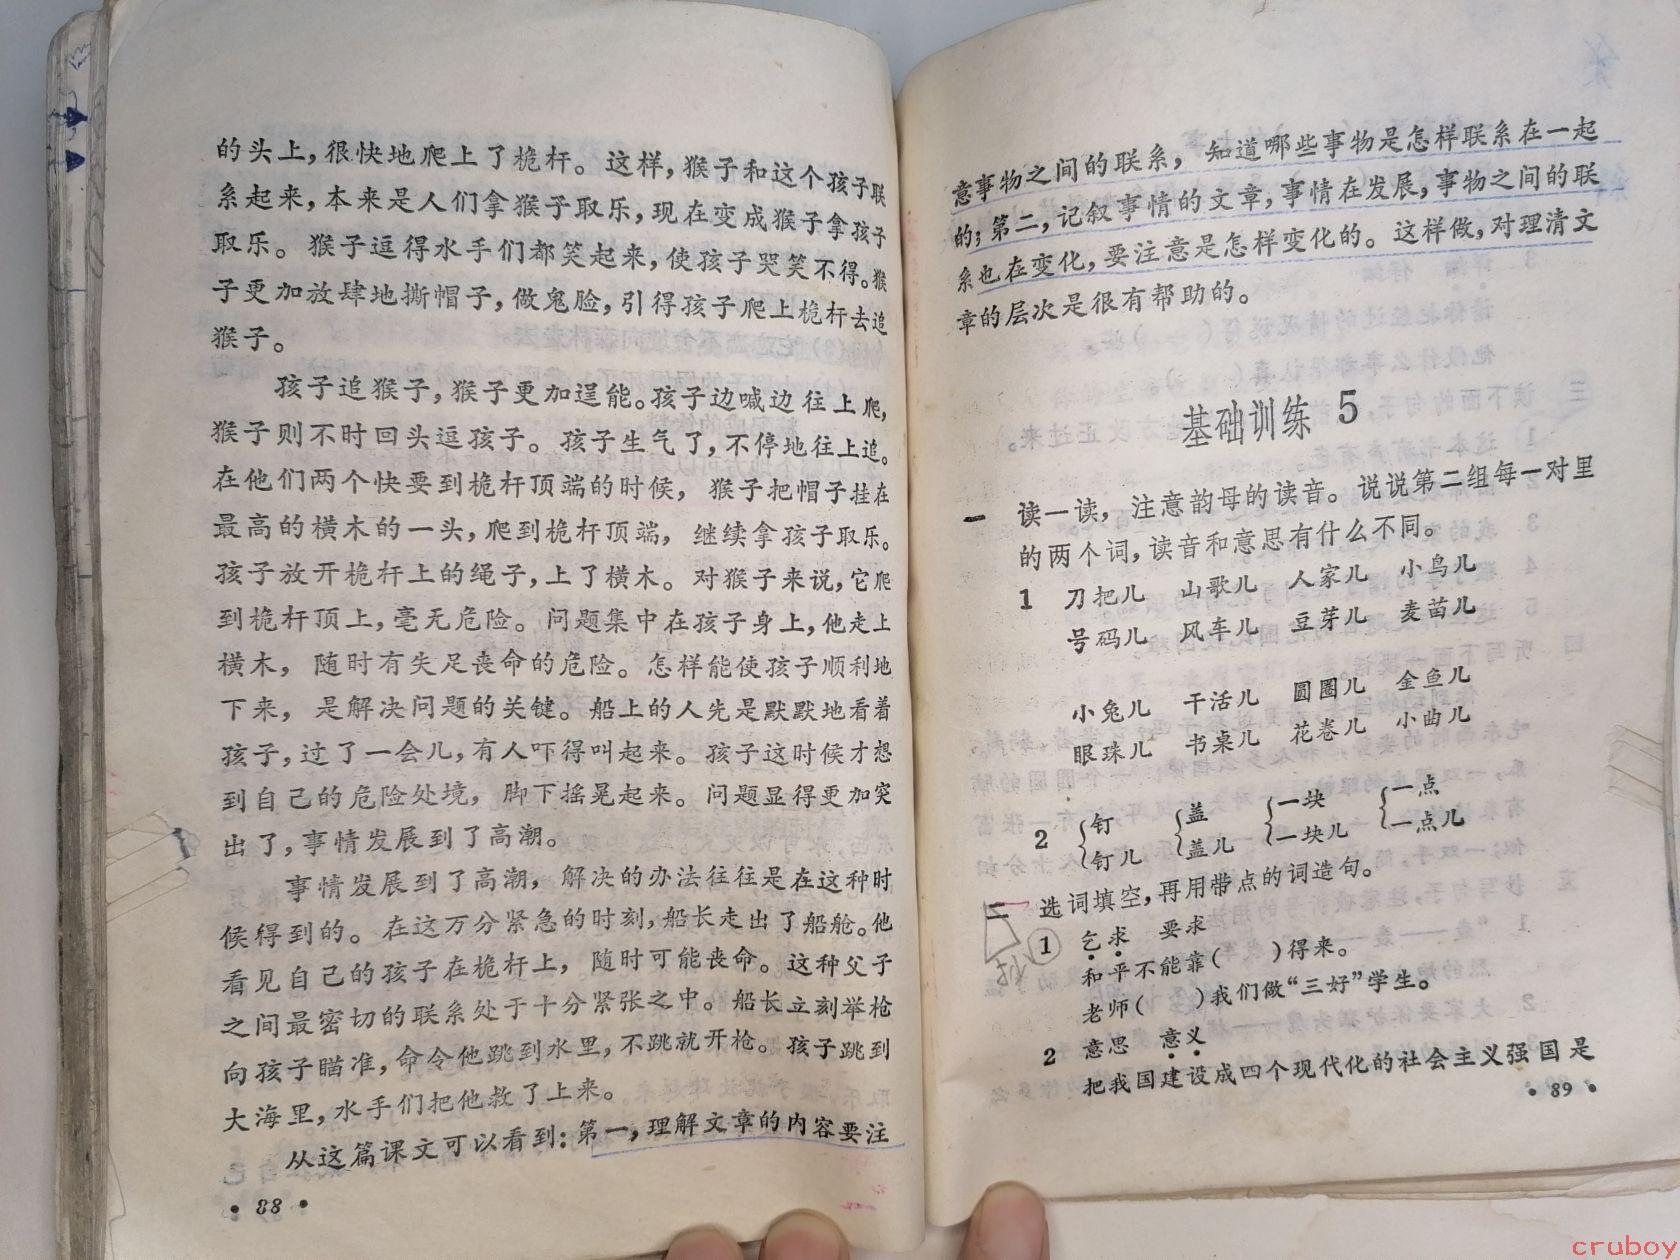 的头上，很快地爬上了桅杆。这样，猴子和这个孩子联
系起来，本来是人们拿猴子取乐，现在变成猴子拿孩子
取乐。猴子逗得水手们都笑起来，使孩子哭笑不得。猴
子更加放肆地撕帽子，做鬼脸，引得孩子爬上桅杆去追
猴子。
孩子追猴子，猴子更加逞能。孩子边喊边往上爬，
猴子则不时回头逗孩子。孩子生气了，不停地往上追。
在他们两个快要到桅杆顶端的时候，猴子把帽子挂在
最高的横木的一头，爬到桅杆顶端，继续拿孩子取乐。
孩子放开桅杆上的绳子，上了横木。对猴子来说，它爬
到桅杆顶上，毫无危险。问题集中在孩子身上，他走上
横木，随时有失足丧命的危险。怎样能使孩子顺利地
下来，是解决问题的关键。船上的人先是默默地看着
孩子，过了一会儿，有人吓得叫起来。孩子这时候才想
到自己的危险处境，脚下摇晃起来。问题显得更加突
出了，事情发展到了高潮。
事情发展到了高潮，解决的办法往往是在这种时
候得到的。在这万分紧急的时刻，船长走出了船舱。他
看见自己的孩子在桅杆上，随时可能丧命。这种父子
之间最密切的联系处于十分紧张之中。船长立刻举枪
向孩子瞄准，命令他跳到水里，不跳就开枪。孩子跳到
大海里，水手们把他救了上来。
从这篇课文可以看到：第一，理解文章的内容要注
·88·
意事物之间的联系，知道哪些事物是怎样联系在一起
的；第二，记叙事情的文章，事情在发展，事物之间的联
系也在变化，要注意是怎样变化的。这样做，对理清文
章的层次是很有帮助的。
基础训练 5
一 读一读，注意韵母的读音。说说第二组每一对里
的两个词，读音和意思有什么不同。
1 刀把儿 山歌儿 人家儿 小鸟儿
号码儿 风车儿 豆芽儿 麦苗儿
小兔儿 干活儿 圆圈儿 金鱼儿
眼珠儿 书桌儿 花卷儿 小曲儿
2 钉 盖 一块 一点
钉儿 盖儿 一块儿 一点儿
二 选词填空，再用带点的词造句。
1 乞求 要求
和平不能靠（ ）得来。
老师（ ）我们做“三好”学生。
2 意思 意义
把我国建设成四个现代化的社会主义强国是
·89·
cruboy